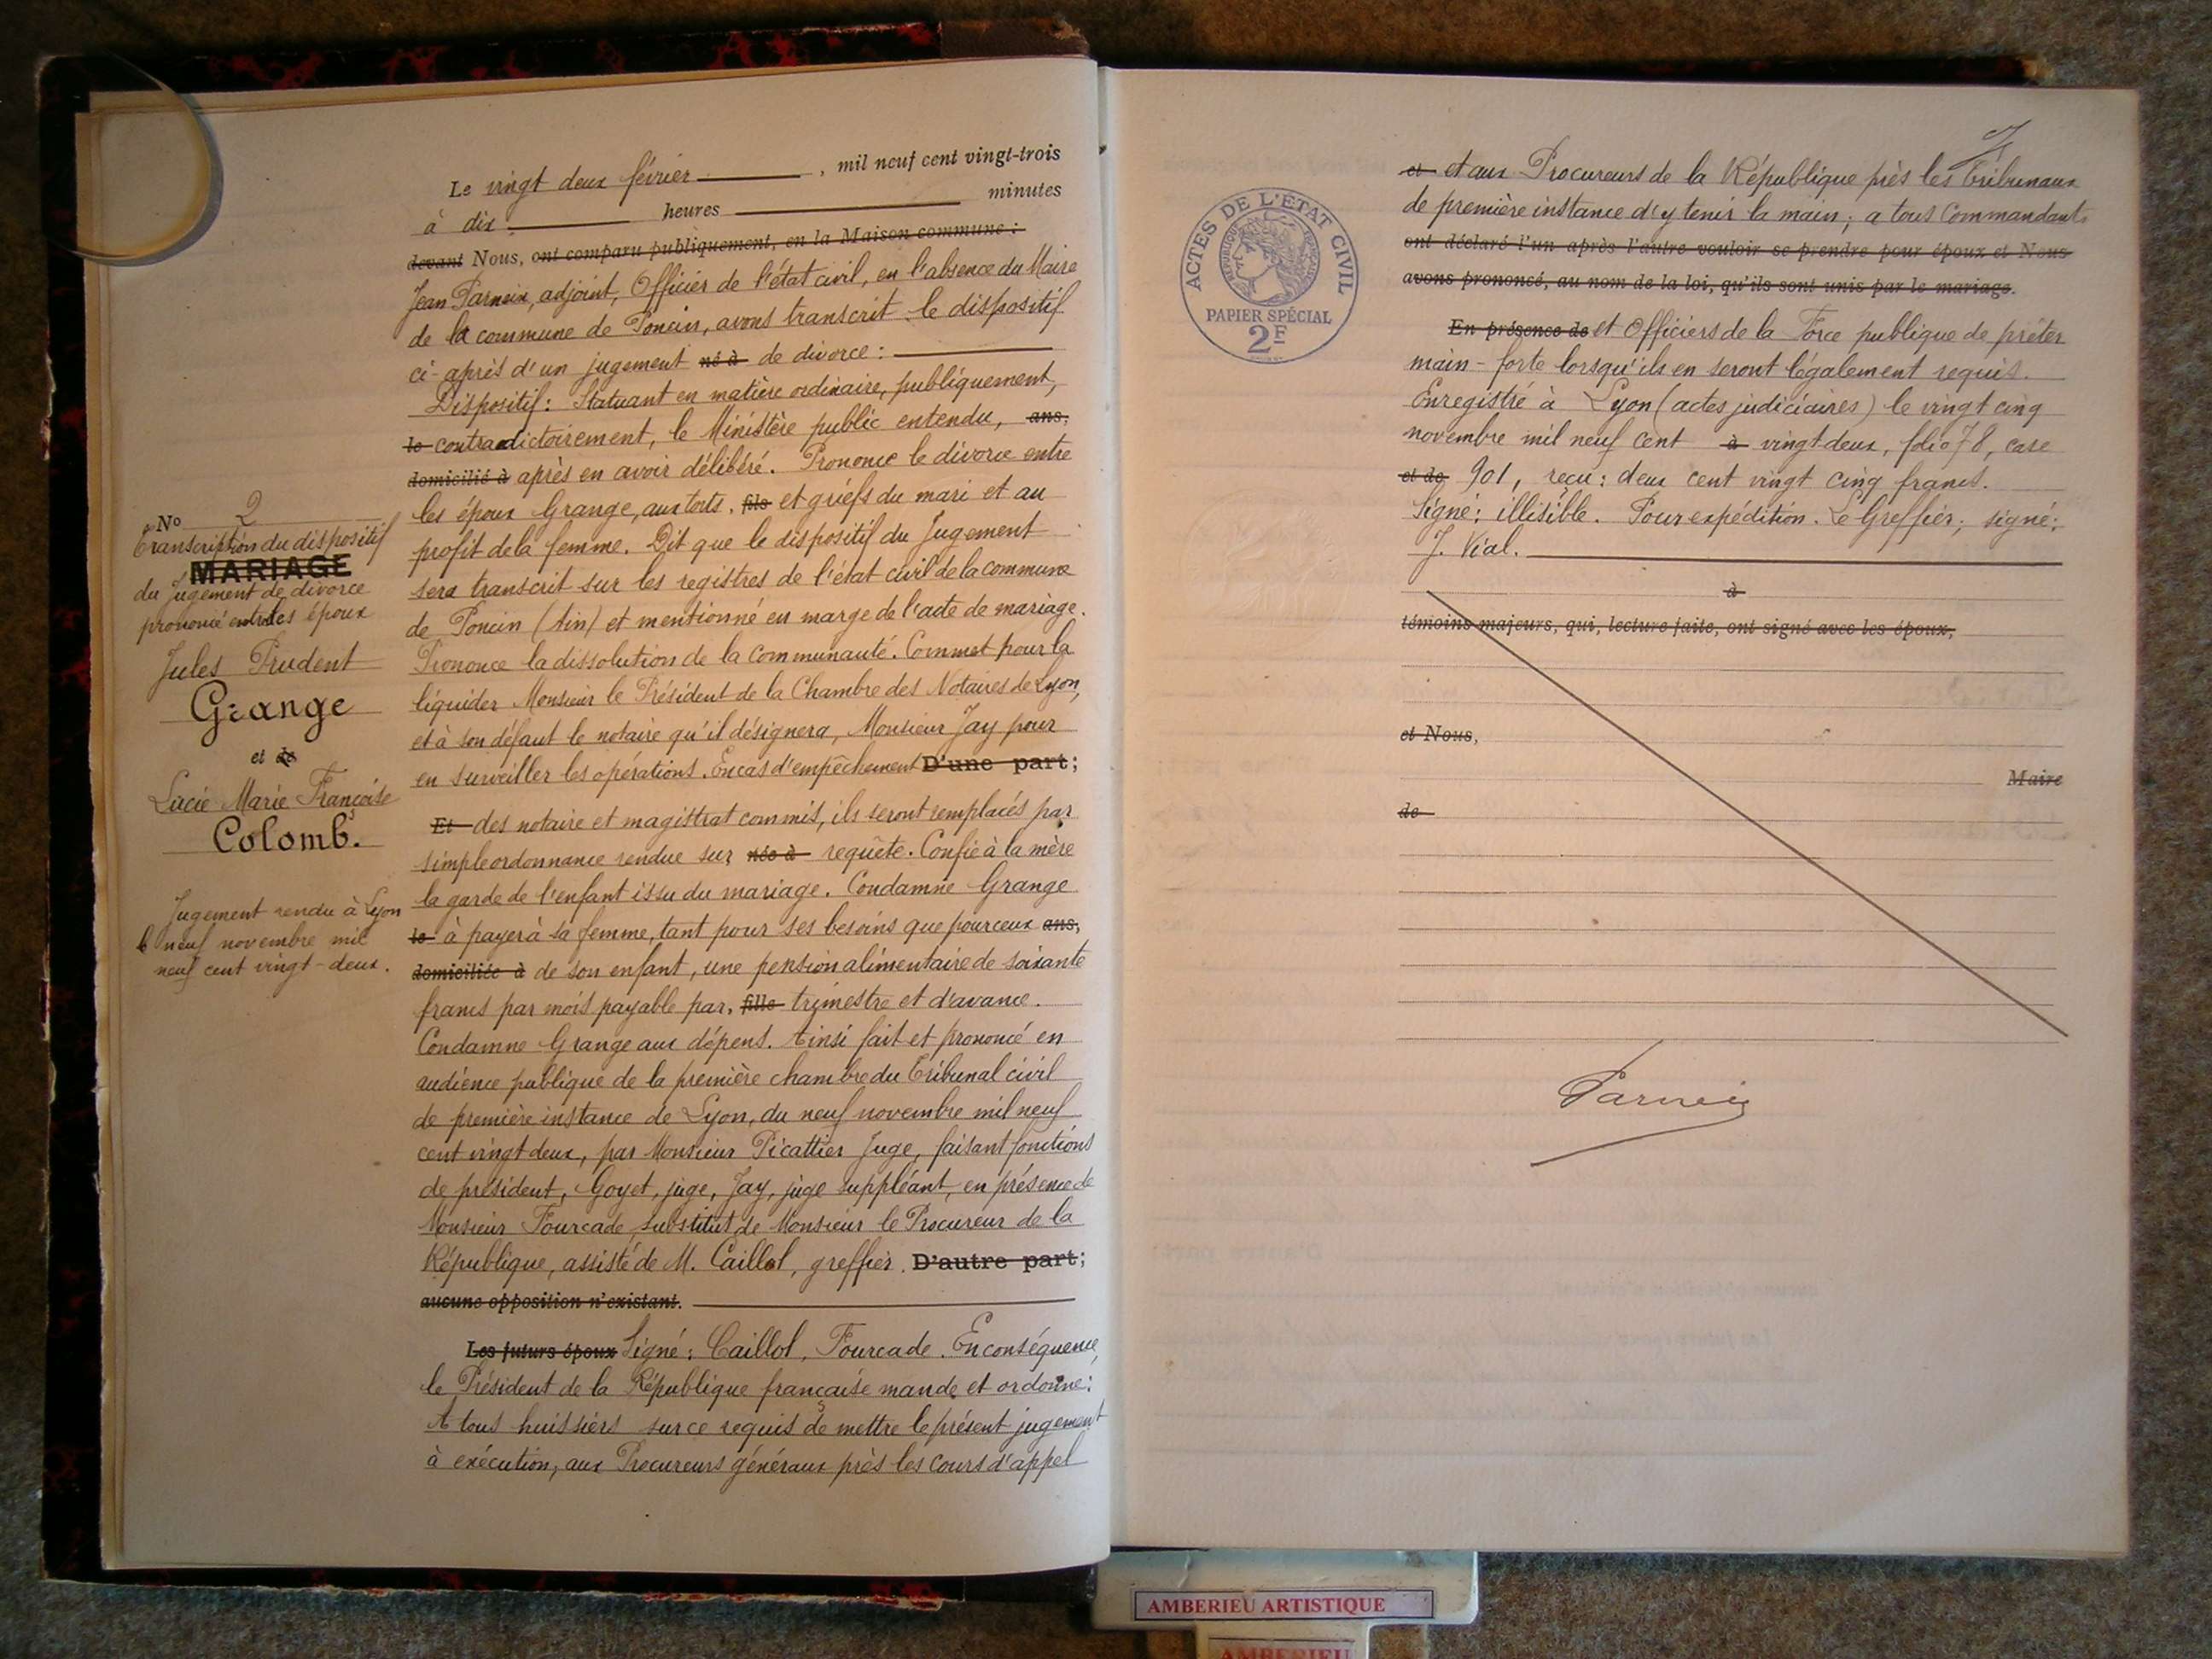 Le vingt deux février, mil neuf cent vingt-trois
à dix heures minutes
devant Nous, ont comparu publiquement, en la Maison commune :
Jean Parnein, adjoint, Officier de l'état civil, en l'absence du Maire
de la commune de Poncin, avons transcrit le dispositif
ci-après d'un jugement né à de divorce :
Dispositif : Statuant en matière ordinaire, publiquement,
le contradictoirement, le Ministère public entendu, ans,
domicilié à après en avoir délibéré. Prononce le divorce entre
les époux Grange, aux torts, fils et griefs du mari et au
profit de la femme. Dit que le dispositif du Jugement
sera transcrit sur les registres de l'état civil de la commune
de Poncin (Ain) et mentionné en marge de l'acte de mariage.
Prononce la dissolution de la communauté. Commet pour la
liquider Monsieur le Président de la Chambre des Notaires de Lyon,
et à son défaut le notaire qu'il désignera, Monsieur Jay pour
en surveiller les opérations. En cas d'empêchement D'une part ;
Et des notaire et magistrat commis, ils seront remplacés par
simple ordonnance rendue sur née à requête. Confie à la mère
la garde de l'enfant issu du mariage. Condamne Grange
le à payer à sa femme, tant pour ses besoins que pour ceux ans,
domiciliée à de son enfant, une pension alimentaire de soixante
francs par mois payable par, fille trimestre et d'avance.
Condamne Grange aux dépens. Ainsi fait et prononcé en
audience publique de la première chambre du Tribunal civil
de première instance de Lyon, du neuf novembre mil neuf
cent vingt deux, par Monsieur Picattier Juge, faisant fonctions
de président, Goyet, juge, Jay, juge suppléant, en présence de
Monsieur Fourcade, substitut de Monsieur le Procureur de la
République, assisté de M. Caillot, greffier. D'autre part ;
aucune opposition n'existant.
Les futurs époux Signé : Caillot, Fourcade. En conséquence,
le Président de la République française mande et ordonne :
A tous huissiers sur ce requis de mettre le présent jugement
à exécution, aux Procureurs généraux près les Cours d'appel
No 2
Transcription du dispositif
MARIAGE
du Jugement de divorce
prononcé entre les époux
Jules Prudent
Grange
et de
Lucie Marie Françoise
Colomb.
Jugement rendu à Lyon
le neuf novembre mil
neuf cent vingt-deux.
ACTES DE L'ETAT CIVIL
RÉPUBLIQUE FRANÇAISE
PAPIER SPÉCIAL
2F
7
et et aux Procureurs de la République près les Tribunaux
de première instance d'y tenir la main ; a tous Commandants
ont déclaré l'un après l'autre vouloir se prendre pour époux et Nous
avons prononcé, au nom de la loi, qu'ils sont unis par le mariage.
En présence de et Officiers de la Force publique de prêter
main-forte lorsqu'ils en seront légalement requis.
Enregistré à Lyon (actes judiciaires) le vingt cinq
novembre mil neuf cent à vingt deux, folio 78, case
et de 901, reçu : deux cent vingt cinq francs.
Signé : illisible. Pour expédition. Le Greffier, signé :
J. Vial.
à
témoins majeurs, qui, lecture faite, ont signé avec les époux,
et Nous,
Maire
de
Parnein
AMBERIEU ARTISTIQUE
AMBERIEU